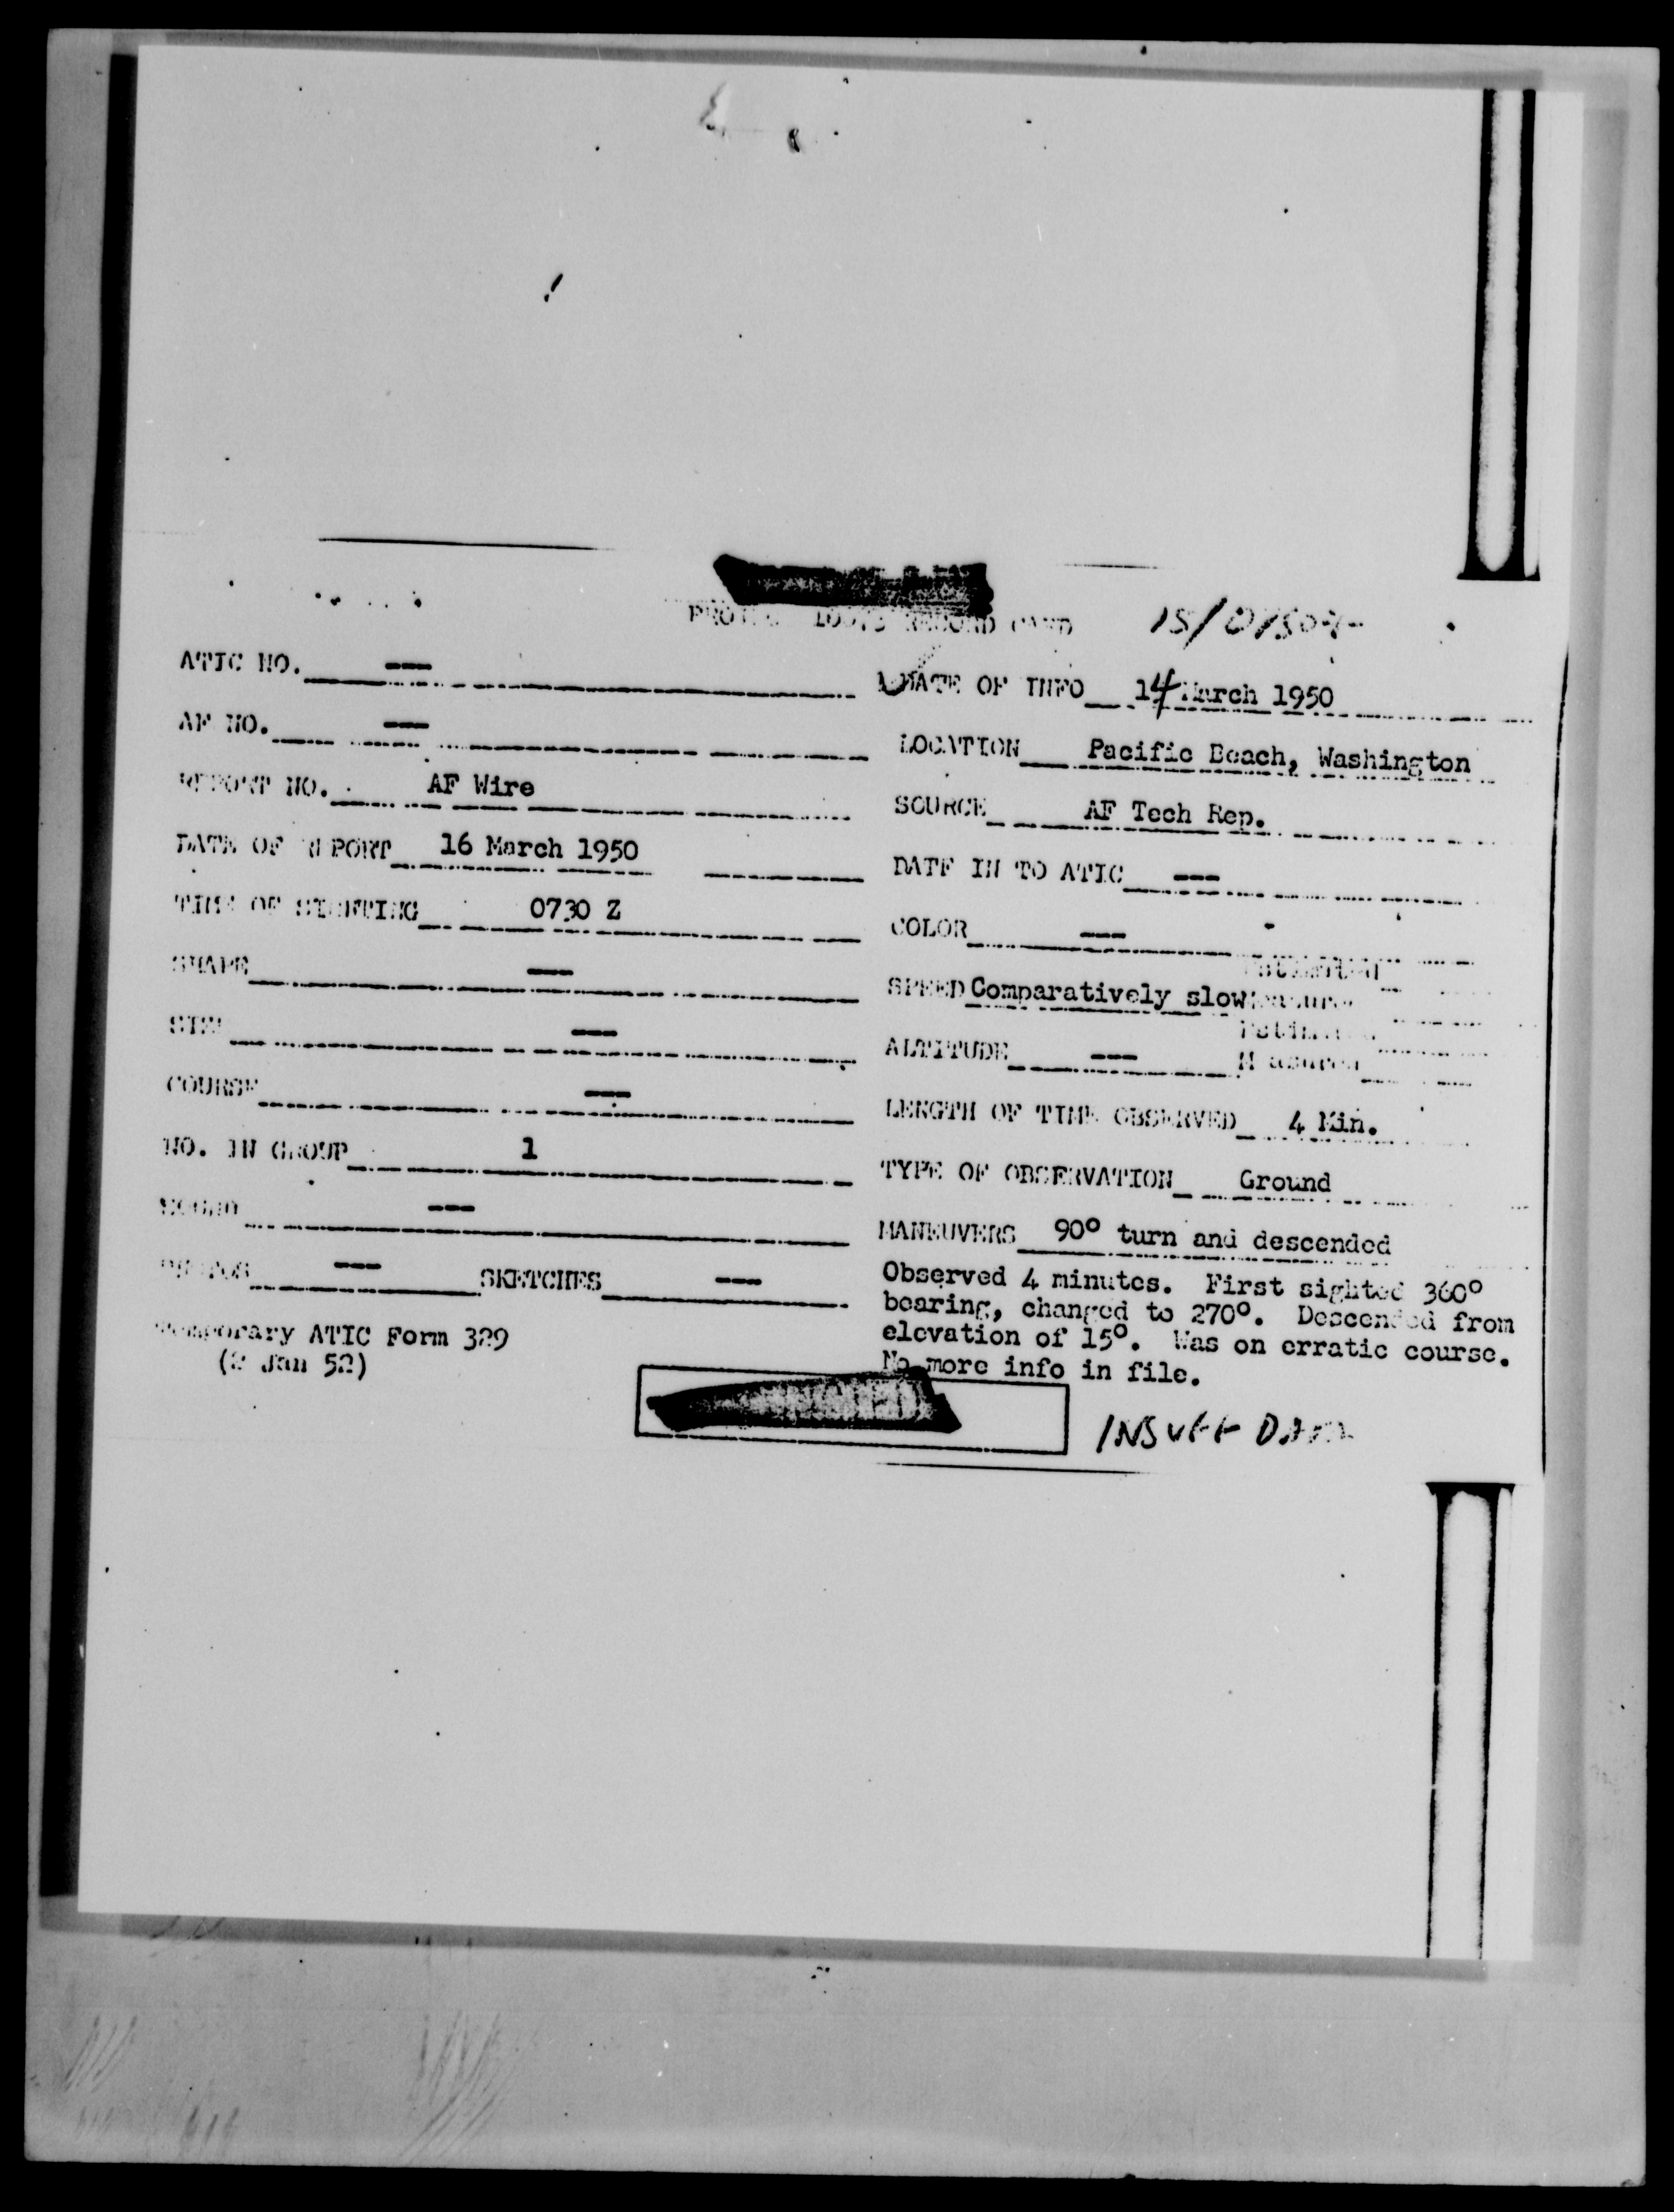 RECORD CARD
ATIC NO. ---
DATE OF INFO 14 March 1950
AF NO. ---
LOCATION Pacific Beach, Washington
REPORT NO. AF Wire
SOURCE AF Tech Rep.
DATE OF REPORT 16 March 1950
DATE IN TO ATIC ---
TIME OF SIGHTING 0730 Z
COLOR ---
SHAPE ---
SPEED Comparatively slow
SIZE ---
ALTITUDE --- Measured
COURSE ---
LENGTH OF TIME OBSERVED 4 Min.
NO. IN GROUP 1
TYPE OF OBSERVATION Ground
SOUND ---
MANEUVERS 90° turn and descended
PHOTOS --- SKETCHES ---
Observed 4 minutes. First sighted 360°
bearing, changed to 270°. Descended from
elevation of 15°. Was on erratic course.
No more info in file.
Temporary ATIC Form 329
(2 Jan 52)
INSUFF DATA